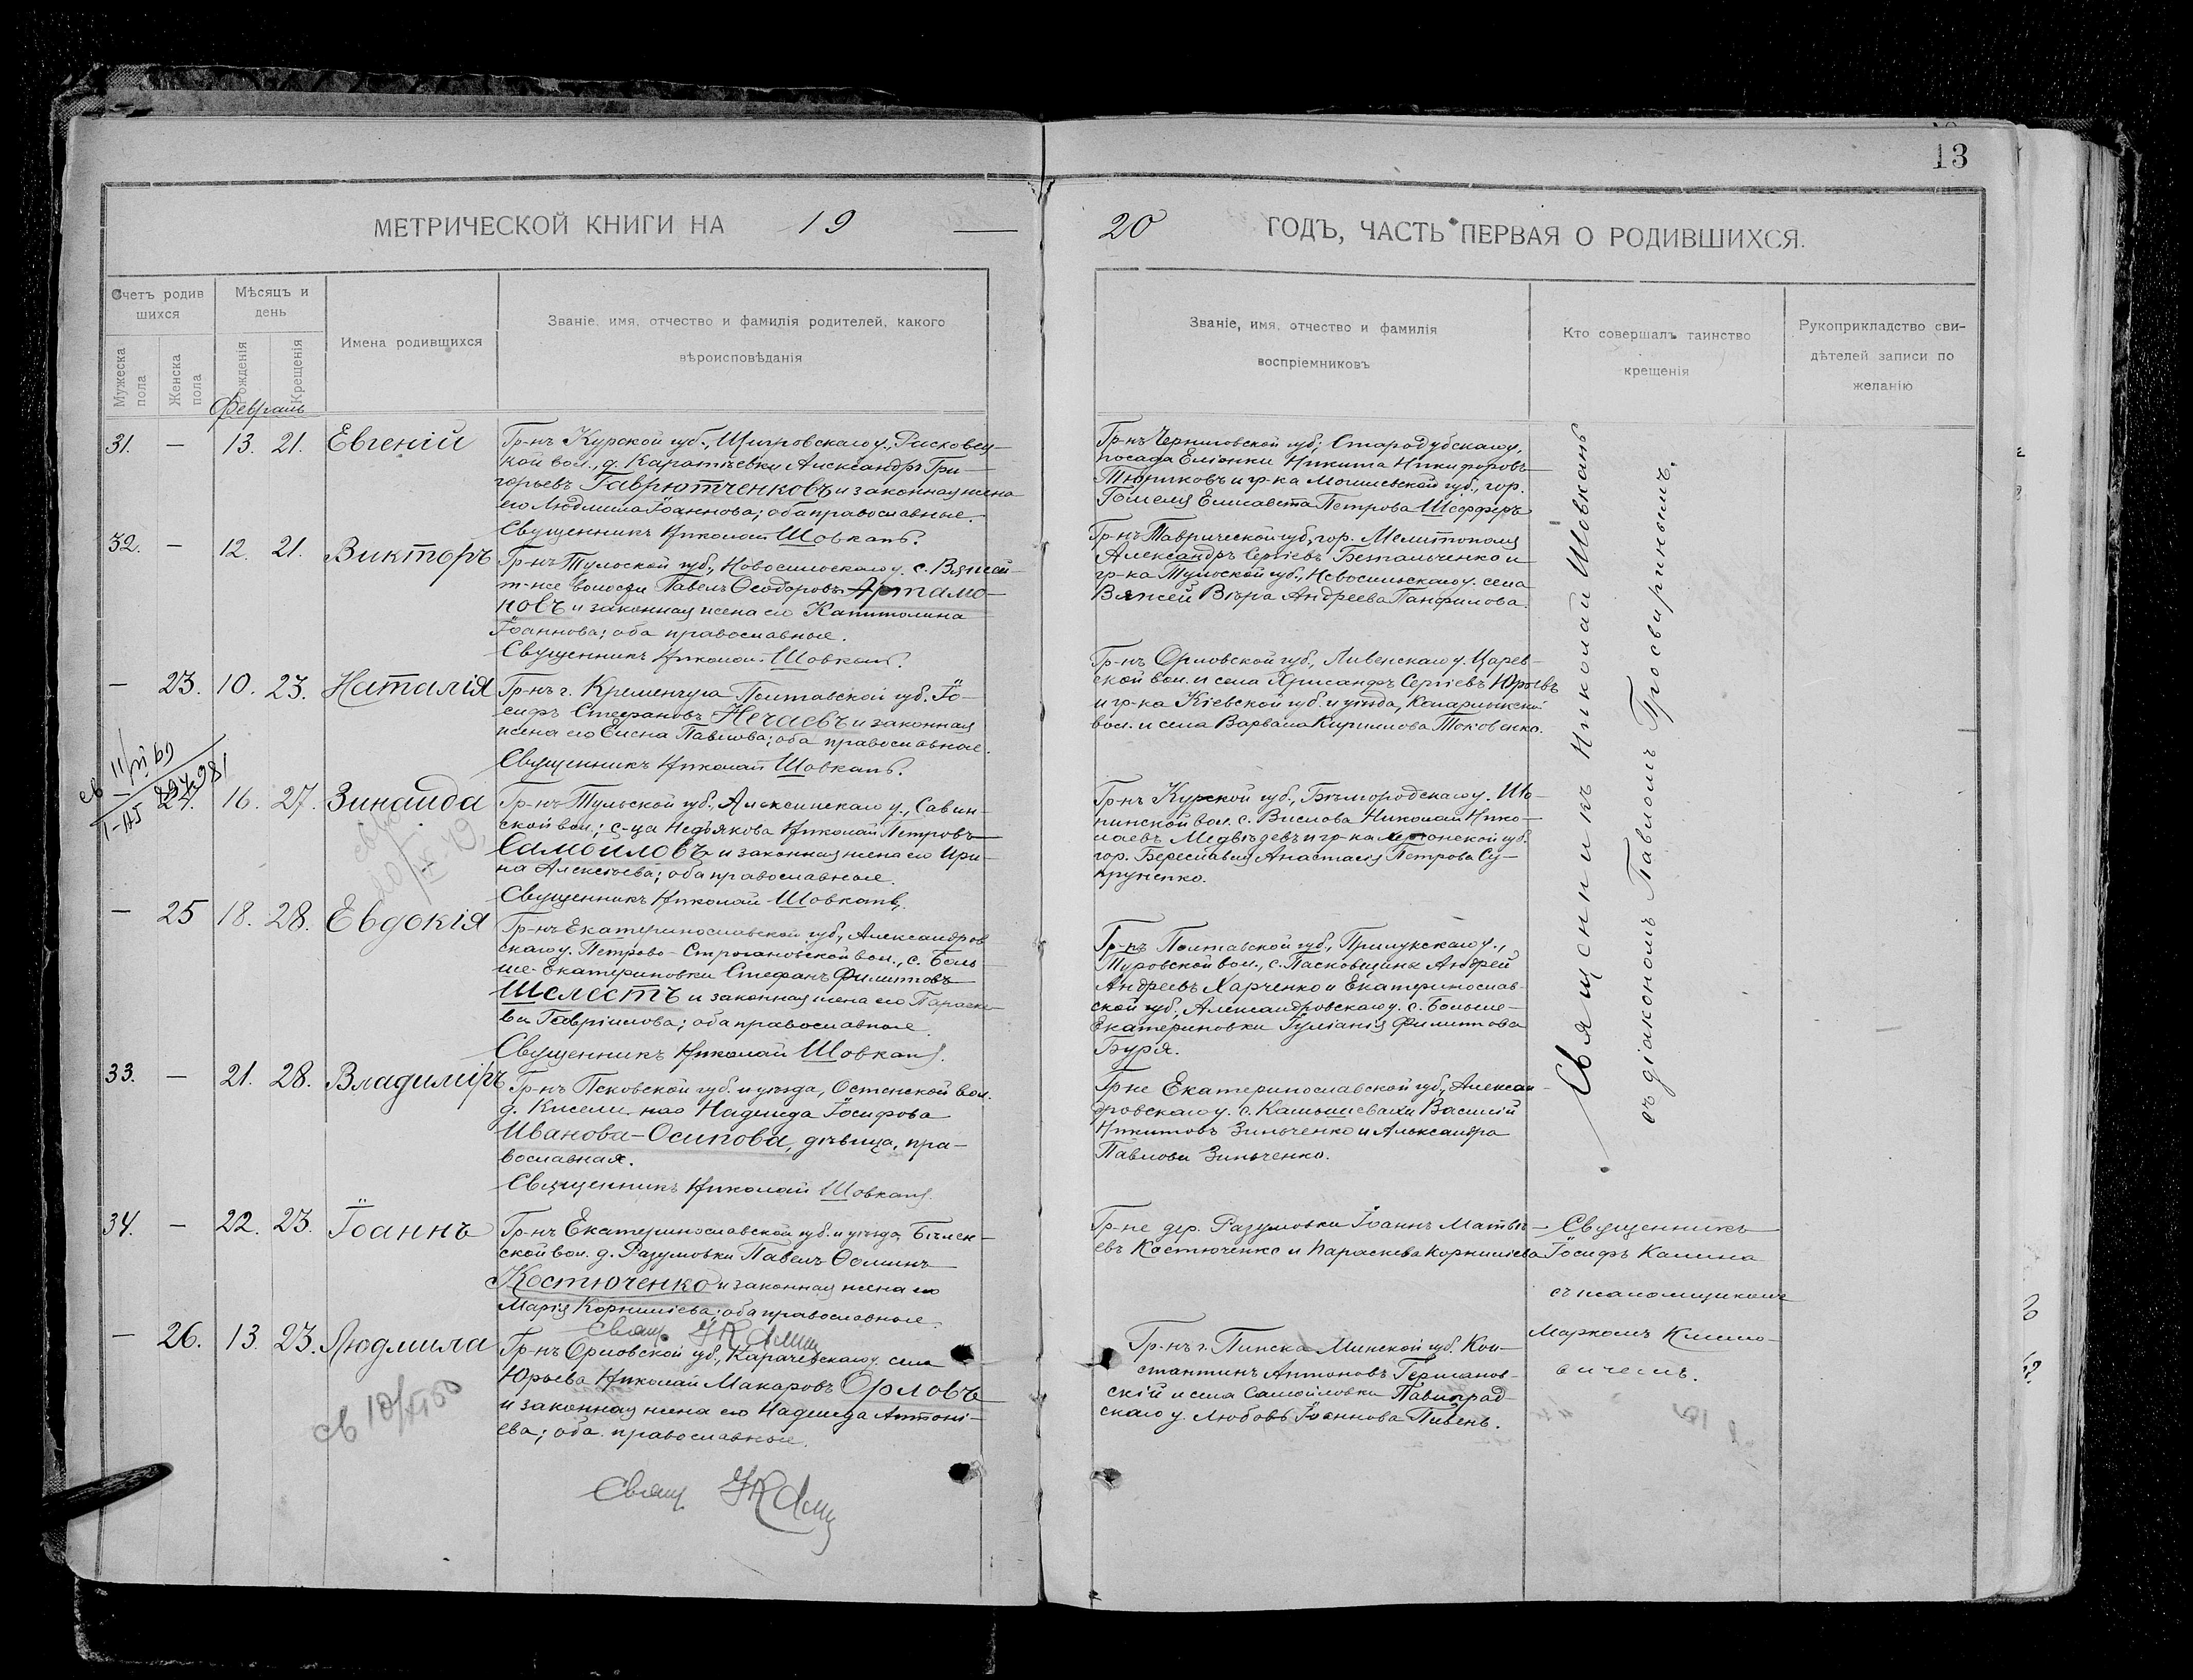 13
МЕТРИЧЕСКОЙ КНИГИ НА 19
20 ГОДЪ, ЧАСТЬ ПЕРВАЯ О РОДИВШИХСЯ.
Счетъ родив
шихся
Мужеска пола
Женска пола
Мѣсяцъ и
день
Рожденія
Крещенія
Имена родившихся
Званіе, имя, отчество и фамилія родителей, какого
вѣроисповѣданія
Званіе, имя, отчество и фамилія
воспріемниковъ
Кто совершалъ таинство
крещенія
Рукоприкладство сви-
дѣтелей записи по
желанію
Февраль
31. — 13. 21. Евгеній
Гр-нъ Курской губ., Щигровскаго у., Расховец-
кой вол., д. Каратѣевки Александръ Гри-
горьевъ Гаврютченковъ и законная жена
его Людмила Іоаннова; оба православные.
Священникъ Николай Шовкань.
Гр-нъ Черниговской губ., Стародубскаго у.
посада Еліонки Никита Никифоровъ
Тюриковъ и гр-ка Могилевской губ., гор.
Гомеля Елисавета Петрова Шефферъ
32. — 12. 21. Викторъ
Гр-нъ Тульской губ., Новосильскаго у. с. Вяжей
т-же волости Павелъ Ѳеодоровъ Артамо-
новъ и законная жена его Капитолина
Іоаннова; оба православные.
Священникъ Николай Шовкань.
Гр-нъ Таврической губ., гор. Мелитополя
Александръ Сергіевъ Бетальченко и
гр-ка Тульской губ., Новосильскаго у. села
Вяжей Вѣра Андреева Панфилова.
— 23. 10. 23. Наталія
Гр-нъ г. Кременчуга Полтавской губ. Іо-
сифъ Стефановъ Нечаевъ и законная
жена его Елена Павлова; оба православные.
Священникъ Николай Шовкань.
Гр-нъ Орловской губ., Ливенскаго у. Царев-
ской вол. и села Хрисанфъ Сергіевъ Юрьевъ
и гр-ка Кіевской губ. и уѣзда, Кагарлыкской
вол. и села Варвара Кириллова Токовенко.
— 24. 16. 27. Зинаида
Гр-нъ Тульской губ., Алексинскаго у., Савин-
ской вол.; с-ца Недьякова Николай Петровъ
Самойловъ и законная жена его Ири-
на Алексіева; оба православные.
Священникъ Николай Шовкань.
Гр-нъ Курской губ., Бѣлгородскаго у. Шо-
пинской вол. с. Вислова Николай Нико-
лаевъ Медвѣдевъ и гр-ка Херсонской губ.
гор. Береславля Анастасія Петрова Су-
пруненко.
— 25 18. 28. Евдокія
Гр-нъ Екатеринославской губ., Александров
скаго у. Петрово-Строгановской вол., с. Боль
ше-Екатериновки Стефанъ Филиповъ
Шелестъ и законная жена его Параске-
ва Гавріилова; оба православные.
Священникъ Николай Шовкань.
Гр-нъ Полтавской губ., Прилукскаго у.,
Туровской вол., с. Пасковщины Андрей
Андреевъ Харченко и Екатеринослав-
ской губ., Александровскаго у. с. Больше-
Екатериновки Іуліанія Филиппова
Буря.
33. — 21. 28. Владиміръ
Гр-нъ Псковской губ. и уѣзда, Остенской вол.
д. Кисели Надежда Іосифова
Иванова-Осипова, дѣвица, пра-
вославная.
Священникъ Николай Шовкань.
Гр-не Екатеринославской губ., Алексан-
дровскаго у. с. Камышевахи Василій
Никитовъ Зинченко и Александра
Павлова Зинченко.
Священникъ Николай Шовкань
съ діакономъ Павломъ Просвиринымъ.
34. — 22. 23. Іоаннъ
Гр-нъ Екатеринославской губ. и уѣзда, Бѣлен-
ской вол. д. Разумовки Павелъ Ѳоминъ
Костюченко и законная жена его
Марія Корнилієва; оба православные.
Свящ.
Гр-не дер. Разумовки Іоаннъ Матвѣ-
евъ Костюченко и Параскева Корниліева
Священникъ
Іосифъ Калина
съ псаломщикомъ
Маркомъ Климо-
вичемъ.
— 26. 13. 23. Людмила
Гр-нъ Орловской губ., Карачевскаго у. села
Юрьева Николай Макаровъ Орловъ
и законная жена его Надежда Антоні-
ева; оба православные.
Свящ.
Гр-нъ г. Пинска Минской губ. Кон-
стантинъ Антоновъ Германов-
скій и села Самойловки Павлоград-
скаго у. Любовь Іоаннова Пивень.